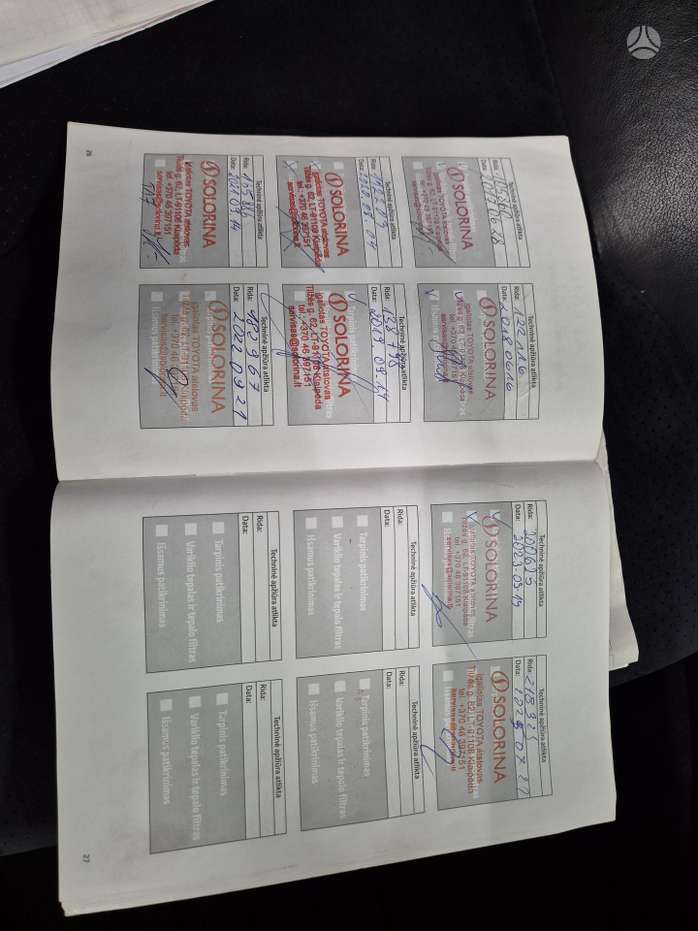 Techninė apžiūra atlikta
Rida:
Data:
SOLORINA
Įgaliotas TOYOTA atstovas
Tilžės g. 62, LT-91108 Klaipėda
tel. +370 46 397151
Techninė apžiūra atlikta
Rida: 122116
Data: 2018 06 16
SOLORINA
Įgaliotas TOYOTA atstovas
Tilžės g. 62, LT-91108 Klaipėda
Techninė apžiūra atlikta
Rida:
Data:
SOLORINA
Įgaliotas TOYOTA atstovas
Tilžės g. 62, LT-91108 Klaipėda
tel.: +370 46 397151
servisas@solorina.lt
Techninė apžiūra atlikta
Rida:
Data: 2019 09.19
SOLORINA
Įgaliotas TOYOTA atstovas
Tilžės g. 62, LT-91108 Klaipėda
tel.: +370 46 397151
servisas@solorina.lt
Techninė apžiūra atlikta
Rida:
Data: 2021 09 14
SOLORINA
Įgaliotas TOYOTA atstovas
Tilžės g. 62, LT-91108 Klaipėda
tel. +370 46 397151
servisas@solorina.lt
Techninė apžiūra atlikta
Rida: 182967
Data: 2022 09 21
SOLORINA
Įgaliotas TOYOTA atstovas
Tilžės g. 62, LT-91108 Klaipėda
26
Techninė apžiūra atlikta
Rida:
Data: 2023-09.19
SOLORINA
Įgaliotas TOYOTA atstovas
Tilžės g. 62, LT-91108 Klaipėda
tel. +370 46 397151
servisas@solorina.lt
Techninė apžiūra atlikta
Rida:
Data:
SOLORINA
Įgaliotas TOYOTA atstovas
Tilžės g. 62, LT-91108 Klaipėda
tel. +370 46 397151
servisas@solorina.lt
Techninė apžiūra atlikta
Rida:
Data:
Tarpinis patikrinimas
Variklio tepalas ir tepalo filtras
Išsamus patikrinimas
Techninė apžiūra atlikta
Rida:
Data:
Tarpinis patikrinimas
Variklio tepalas ir tepalo filtras
Išsamus patikrinimas
Techninė apžiūra atlikta
Rida:
Data:
Tarpinis patikrinimas
Variklio tepalas ir tepalo filtras
Išsamus patikrinimas
Techninė apžiūra atlikta
Rida:
Data:
Tarpinis patikrinimas
Variklio tepalas ir tepalo filtras
Išsamus patikrinimas
27